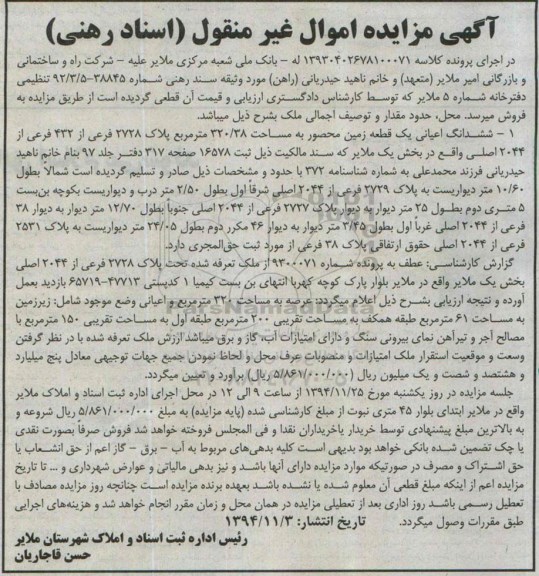 آگهی مزایده اموال غیر منقول (اسناد رهنی)
در اجرای پرونده کلاسه ۱۳۹۳۰۴۰۲۶۷۸۱۰۰۰۷۱ له – بانک ملی شعبه مرکزی ملایر علیه – شرکت راه و ساختمانی
و بازرگانی امیر ملایر (متعهد) و خانم ناهید حیدریانی (راهن) مورد وثیقه سند رهنی شماره ۳۸۸۴۵–۹۲/۳/۵ تنظیمی
دفترخانه شماره ۵ ملایر که توسط کارشناس دادگستری ارزیابی و قیمت آن قطعی گردیده است از طریق مزایده به
فروش میرسد. محل، حدود مقدار و توصیف اجمالی ملک بشرح ذیل میباشد.
۱ – ششدانگ اعیانی یک قطعه زمین محصور به مساحت ۳۲۰/۳۸ مترمربع پلاک ۲۷۲۸ فرعی از ۴۳۲ فرعی از
۲۰۴۴ اصلی واقع در بخش یک ملایر که سند مالکیت ذیل ثبت ۱۶۵۷۸ صفحه ۳۱۷ دفتر جلد ۹۷ بنام خانم ناهید
حیدریانی فرزند محمدعلی به شماره شناسنامه ۳۷۲ با حدود و مشخصات ذیل صادر و تسلیم گردیده است شمالا بطول
۱۰/۶۰ متر دیواریست به پلاک ۲۷۲۹ فرعی از ۲۰۴۴ اصلی شرقاً اول بطول ۲/۵۰ متر درب و دیواریست بکوچه بن‌بست
۵ متری دوم بطول ۲۵ متر دیوار به دیوار پلاک ۲۷۲۷ فرعی از ۲۰۴۴ اصلی جنوباً بطول ۱۲/۷۰ متر دیوار به دیوار ۳۸
فرعی از ۲۰۴۴ اصلی غرباً اول بطول ۳/۴۵ متر دیوار به دیوار ۴۶ مکرر دوم بطول ۲۴/۰۵ متر دیواریست به پلاک ۲۵۳۱
فرعی از ۲۰۴۴ اصلی حقوق ارتفاقی پلاک ۳۸ فرعی از مورد ثبت حق‌المجری دارد.
گزارش کارشناسی: عطف به پرونده شماره ۹۳۰۰۰۷۱ از ملک تعرفه شده تحت پلاک ۲۷۲۸ فرعی از ۲۰۴۴ اصلی
بخش یک ملایر واقع در ملایر بلوار پارک کوچه کهربا انتهای بن بست کیمیا ۱ کدپستی ۴۷۷۱۳–۶۵۷۱۹ بازدید بعمل
آورده و نتیجه ارزیابی بشرح ذیل اعلام میگردد: عرصه به مساحت ۳۲۰ مترمربع و اعیانی وضع موجود شامل: زیرزمین
به مساحت ۶۱ مترمربع طبقه همکف به مساحت تقریبی ۲۰۰ مترمربع طبقه اول به مساحت تقریبی ۱۵۰ مترمربع با
مصالح آجر و تیرآهن نمای بیرونی سنگ و دارای امتیازات آب، گاز و برق میباشد ارزش ملک تعرفه شده با در نظر گرفتن
وسعت و موقعیت استقرار ملک امتیازات و منصوبات عرف محل و لحاظ نمودن جمیع جهات توجیهی معادل پنج میلیارد
و هشتصد و شصت و یک میلیون ریال (۵/۸۶۱/۰۰۰/۰۰۰ ریال) برآورد و تعیین میگردد.
جلسه مزایده در روز یکشنبه مورخ ۱۳۹۴/۱۱/۲۵ از ساعت ۹ الی ۱۲ در محل اجرای اداره ثبت اسناد و املاک ملایر
واقع در ملایر ابتدای بلوار ۴۵ متری نبوت از مبلغ کارشناسی شده (پایه مزایده) به مبلغ ۵/۸۶۱/۰۰۰/۰۰۰ ریال شروع و
به بالاترین مبلغ پیشنهادی توسط خریدار یاخریداران نقدا و فی المجلس فروخته خواهد شد فروش صرفاً بصورت نقدی
یا چک تضمین شده بانکی خواهد بود بدیهی است کلیه بدهی‌های مربوط به آب – برق – گاز اعم از حق انشعاب یا
حق اشتراک و مصرف در صورتیکه موارد مزایده دارای آنها باشد و نیز بدهی مالیاتی و عوارض شهرداری و ... تا تاریخ
مزایده اعم از اینکه مبلغ قطعی آن معلوم شده یا نشده باشد بعهده برنده مزایده است چنانچه روز مزایده مصادف با
تعطیل رسمی باشد روز اداری بعد از تعطیلی مزایده در همان محل و زمان مقرر انجام خواهد شد و هزینه‌های اجرایی
طبق مقررات وصول میگردد. تاریخ انتشار: ۱۳۹۴/۱۱/۳
رئیس اداره ثبت اسناد و املاک شهرستان ملایر
حسن قاجاریان